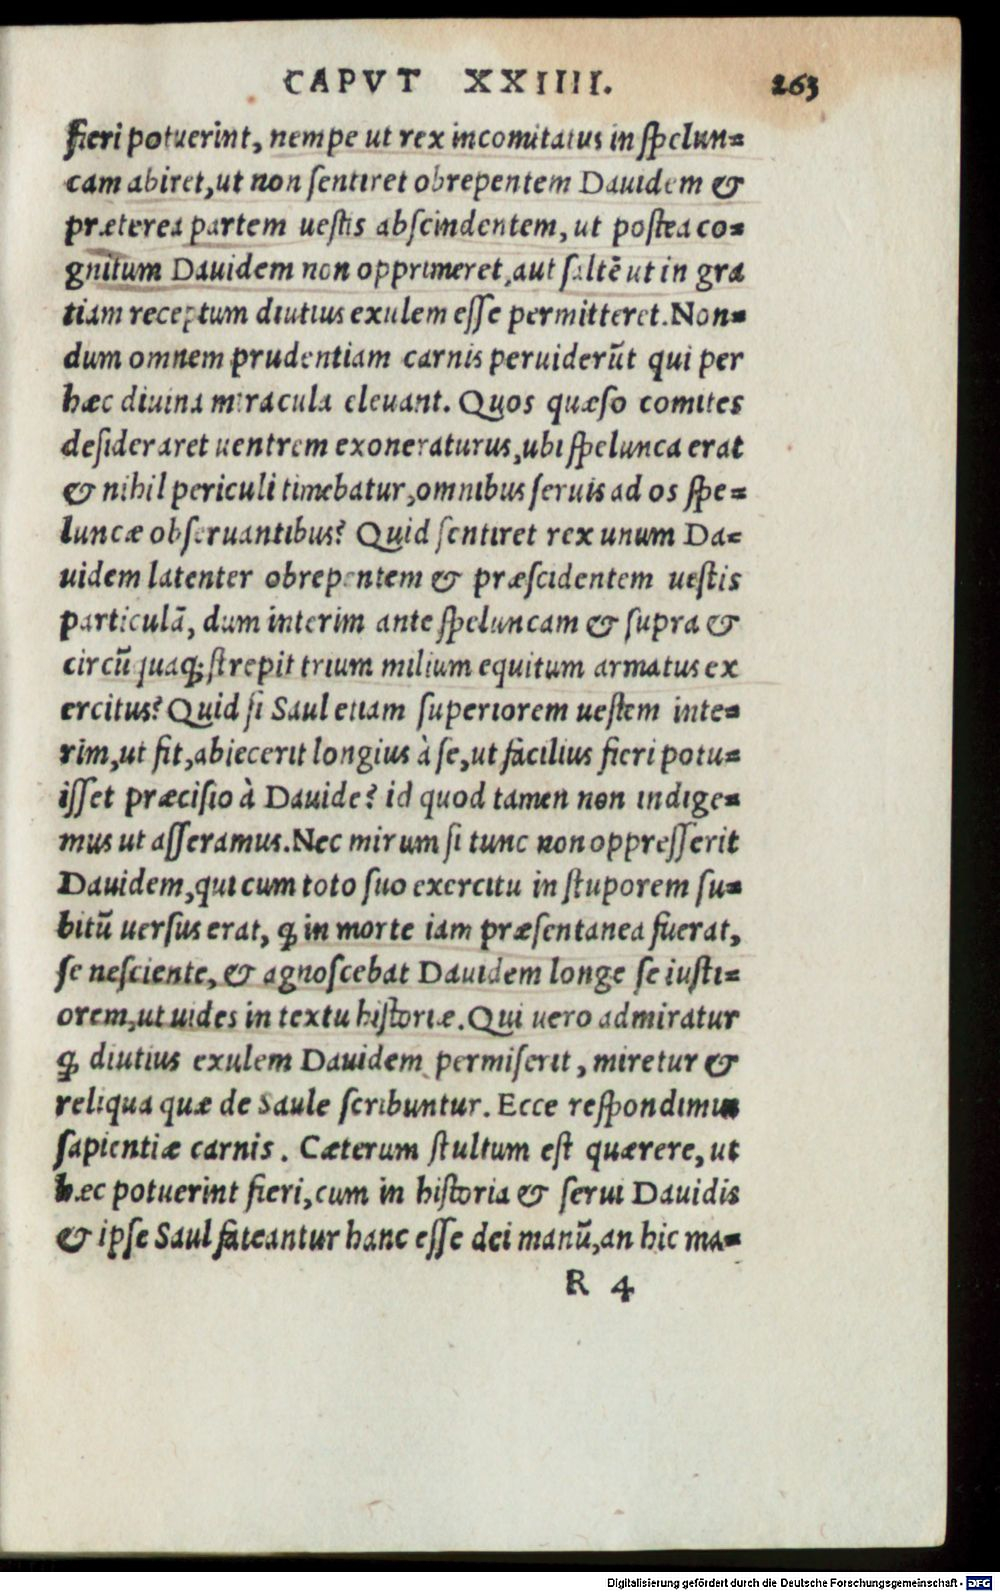 CAPVT XXIIII. 263
fieri potuerint, nempe ut rex incomitatus in ſpelun-
cam abiret, ut non ſentiret obrepentem Dauidem &
præterea partem ueſtis abſcindentem, ut poſtea co-
gnitum Dauidem non opprimeret, aut ſaltē ut in gra
tiam receptum diutius exulem eſſe permitteret. Non-
dum omnem prudentiam carnis peruiderūt qui per
hæc diuina miracula eleuant. Quos quæſo comites
deſideraret uentrem exoneraturus, ubi ſpelunca erat
& nihil periculi timebatur, omnibus ſeruis ad os ſpe-
luncæ obſeruantibus? Quid ſentiret rex unum Da-
uidem latenter obrepentem & præſcidentem ueſtis
particulā, dum interim ante ſpeluncam & ſupra &
circū quaq; ſtrepit trium milium equitum armatus ex
ercitus? Quid ſi Saul etiam ſuperiorem ueſtem inte-
rim, ut fit, abiecerit longius à ſe, ut facilius fieri potu-
iſſet præciſio à Dauide? id quod tamen non indige-
mus ut aſſeramus. Nec mirum ſi tunc non oppreſſerit
Dauidem, qui cum toto ſuo exercitu in ſtuporem ſu-
bitū uerſus erat, ꝗ in morte iam præſentanea fuerat,
ſe neſciente, & agnoſcebat Dauidem longe ſe iuſti-
orem, ut uides in textu hiſtoriæ. Qui uero admiratur
ꝗ diutius exulem Dauidem permiſerit, miretur &
reliqua quæ de Saule ſcribuntur. Ecce reſpondimus
ſapientiæ carnis. Cæterum ſtultum eſt quærere, ut
hæc potuerint fieri, cum in hiſtoria & ſerui Dauidis
& ipſe Saul fateantur hanc eſſe dei manū, an hic ma-
R 4
Digitalisierung gefördert durch die Deutsche Forschungsgemeinschaft - DFG